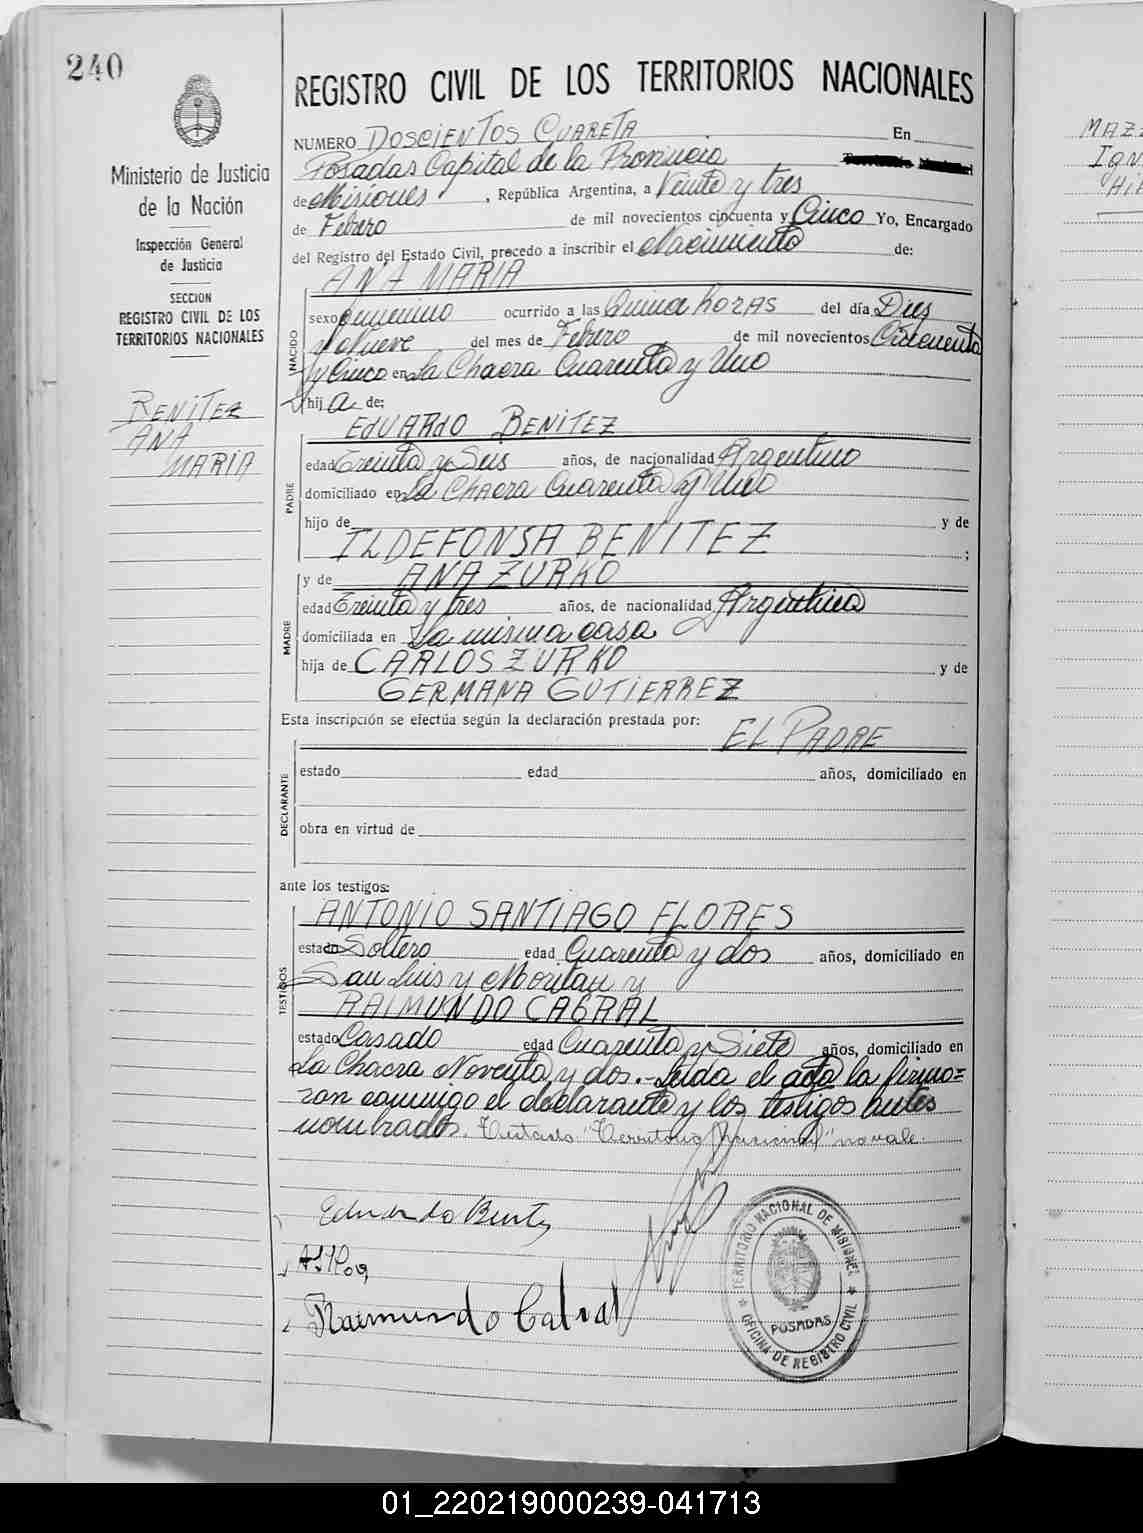 240
Ministerio de Justicia
de la Nación
Inspección General
de Justicia
SECCION
REGISTRO CIVIL DE LOS
TERRITORIOS NACIONALES
BENITEZ
ANA
MARIA
REGISTRO CIVIL DE LOS TERRITORIOS NACIONALES
NUMERO DOSCIENTOS CUARETA En
Posadas Capital de la Provincia
de Misiones, República Argentina, a Veinte y tres
de Febrero de mil novecientos cincuenta y Cinco Yo, Encargado
del Registro del Estado Civil, procedo a inscribir el Nacimiento de:
ANA MARIA
NACIDO
sexo femenino ocurrido a las Quince horas del día Diez
y Nueve del mes de Febrero de mil novecientos Cincuenta
y Cinco en La Chacra Cuarenta y Uno
hija de:
EDUARDO BENITEZ
PADRE
edad Treinta y Seis años, de nacionalidad Argentino
domiciliado en La Chacra Cuarenta y Uno
hijo de y de
ILDEFONSA BENITEZ ;
y de ANA ZURKO
MADRE
edad Treinta y tres años, de nacionalidad Argentina
domiciliada en La misma casa
hija de CARLOS ZURKO y de
GERMANA GUTIERREZ
Esta inscripción se efectúa según la declaración prestada por:
EL PADRE
DECLARANTE
estado edad años, domiciliado en
obra en virtud de
ante los testigos:
ANTONIO SANTIAGO FLORES
TESTIGOS
estado Soltero edad Cuarenta y dos años, domiciliado en
San Luis y Moritan y
RAIMUNDO CABRAL
estado Casado edad Cuarenta y Siete años, domiciliado en
La Chacra Noventa y dos.- Leida el acta la firma=
ron conmigo el declarante y los testigos antes
nombrados. Testado "Territorio Nacional" no vale.
Eduardo Benitez
Raimundo Cabral
TERRITORIO NACIONAL DE MISIONES
POSADAS
OFICINA DE REGISTRO CIVIL
01_220219000239-041713